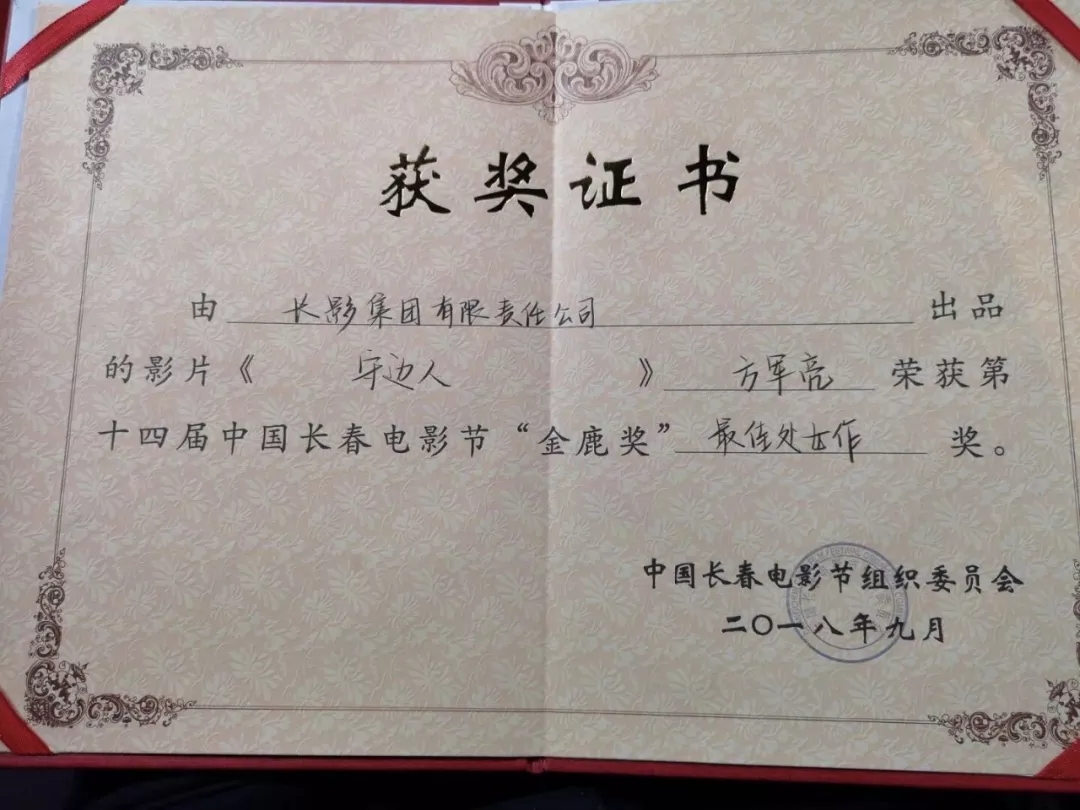 获奖证书
由 长影集团有限责任公司 出品
的影片《 守边人 》 方军亮 荣获第
十四届中国长春电影节“金鹿奖” 最佳处女作 奖。
中国长春电影节组织委员会
二〇一八年九月